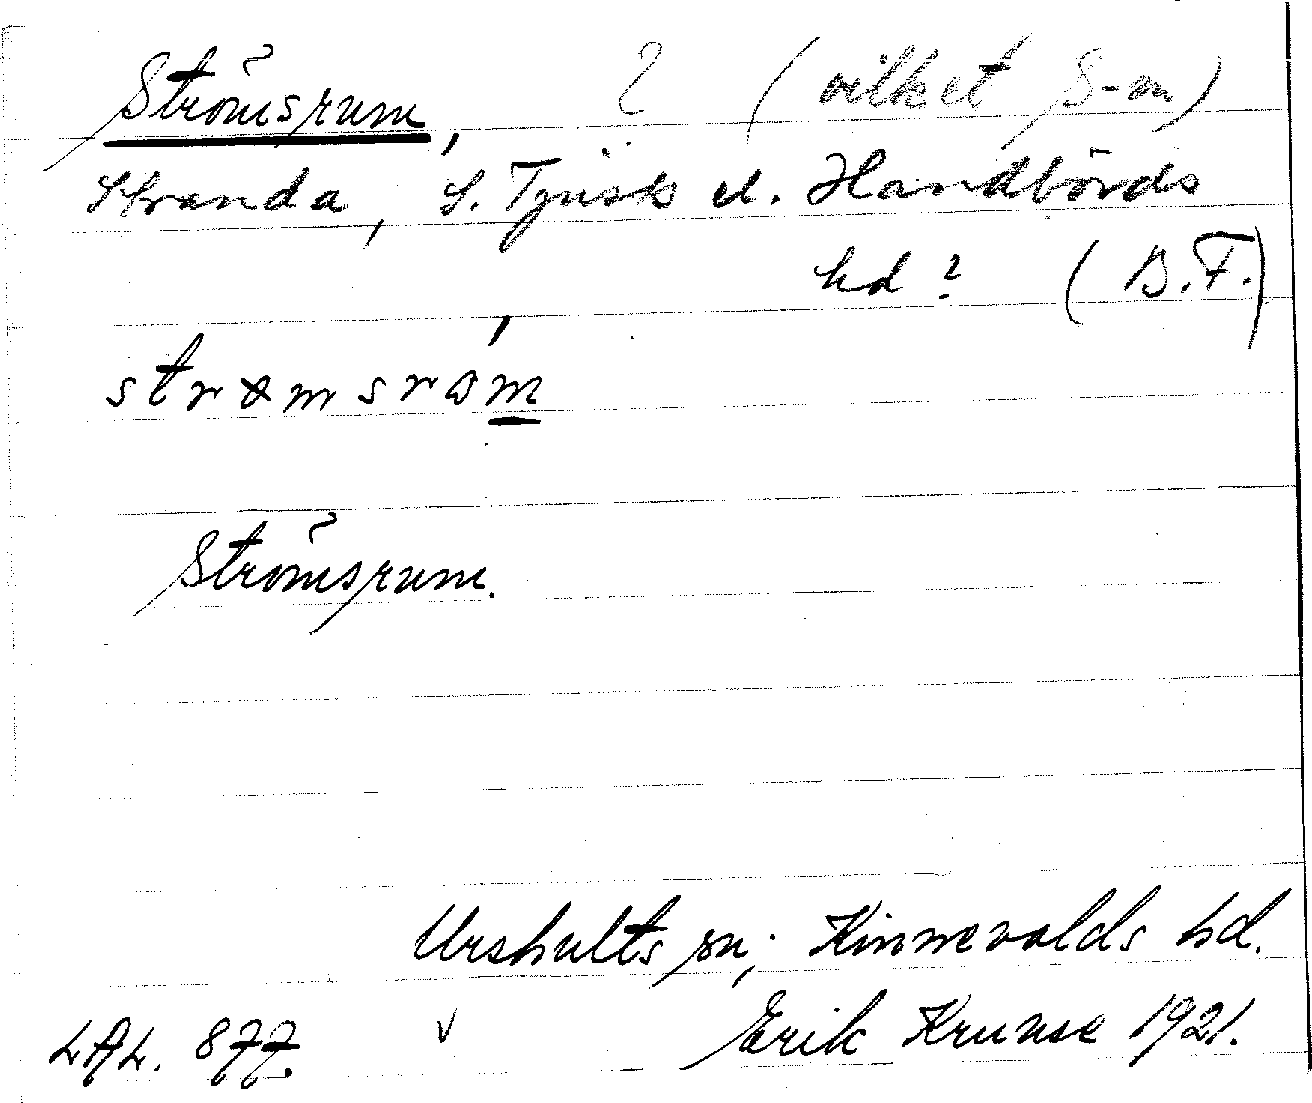 Strömsrum, ? (vilket S-m)
Stranda, S. Tjusts el. Handbörds
hd? (B.F.)
strømsrɷ́m
Strömsrum.
Urshults sn; Kinnevalds hd.
LAL. 877. √ Erik Kruuse 1921.